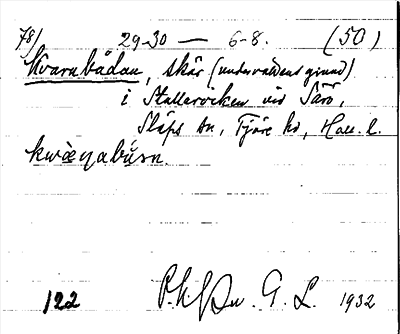 78/ 29-30 — 6-8. (50)
Kvarnbådan, skär (undervattensgrund)
i Stallaviken vid Särö,
Släps sn, Fjäre hd, Hall. l.
122 G. L. 1932